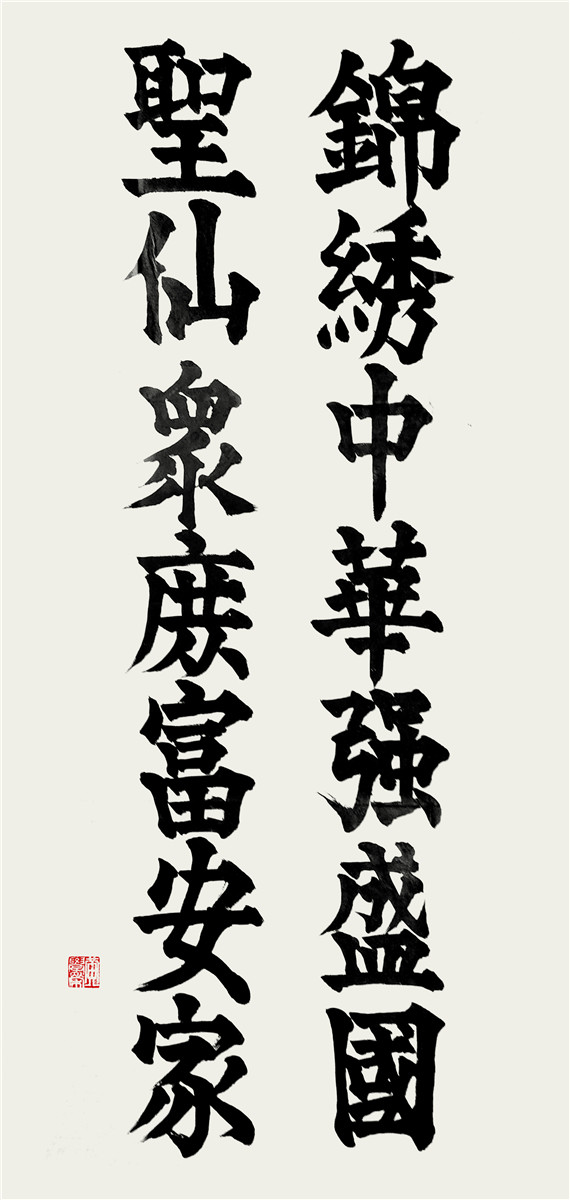 錦綉中華强盛國
聖仙衆庶富安家